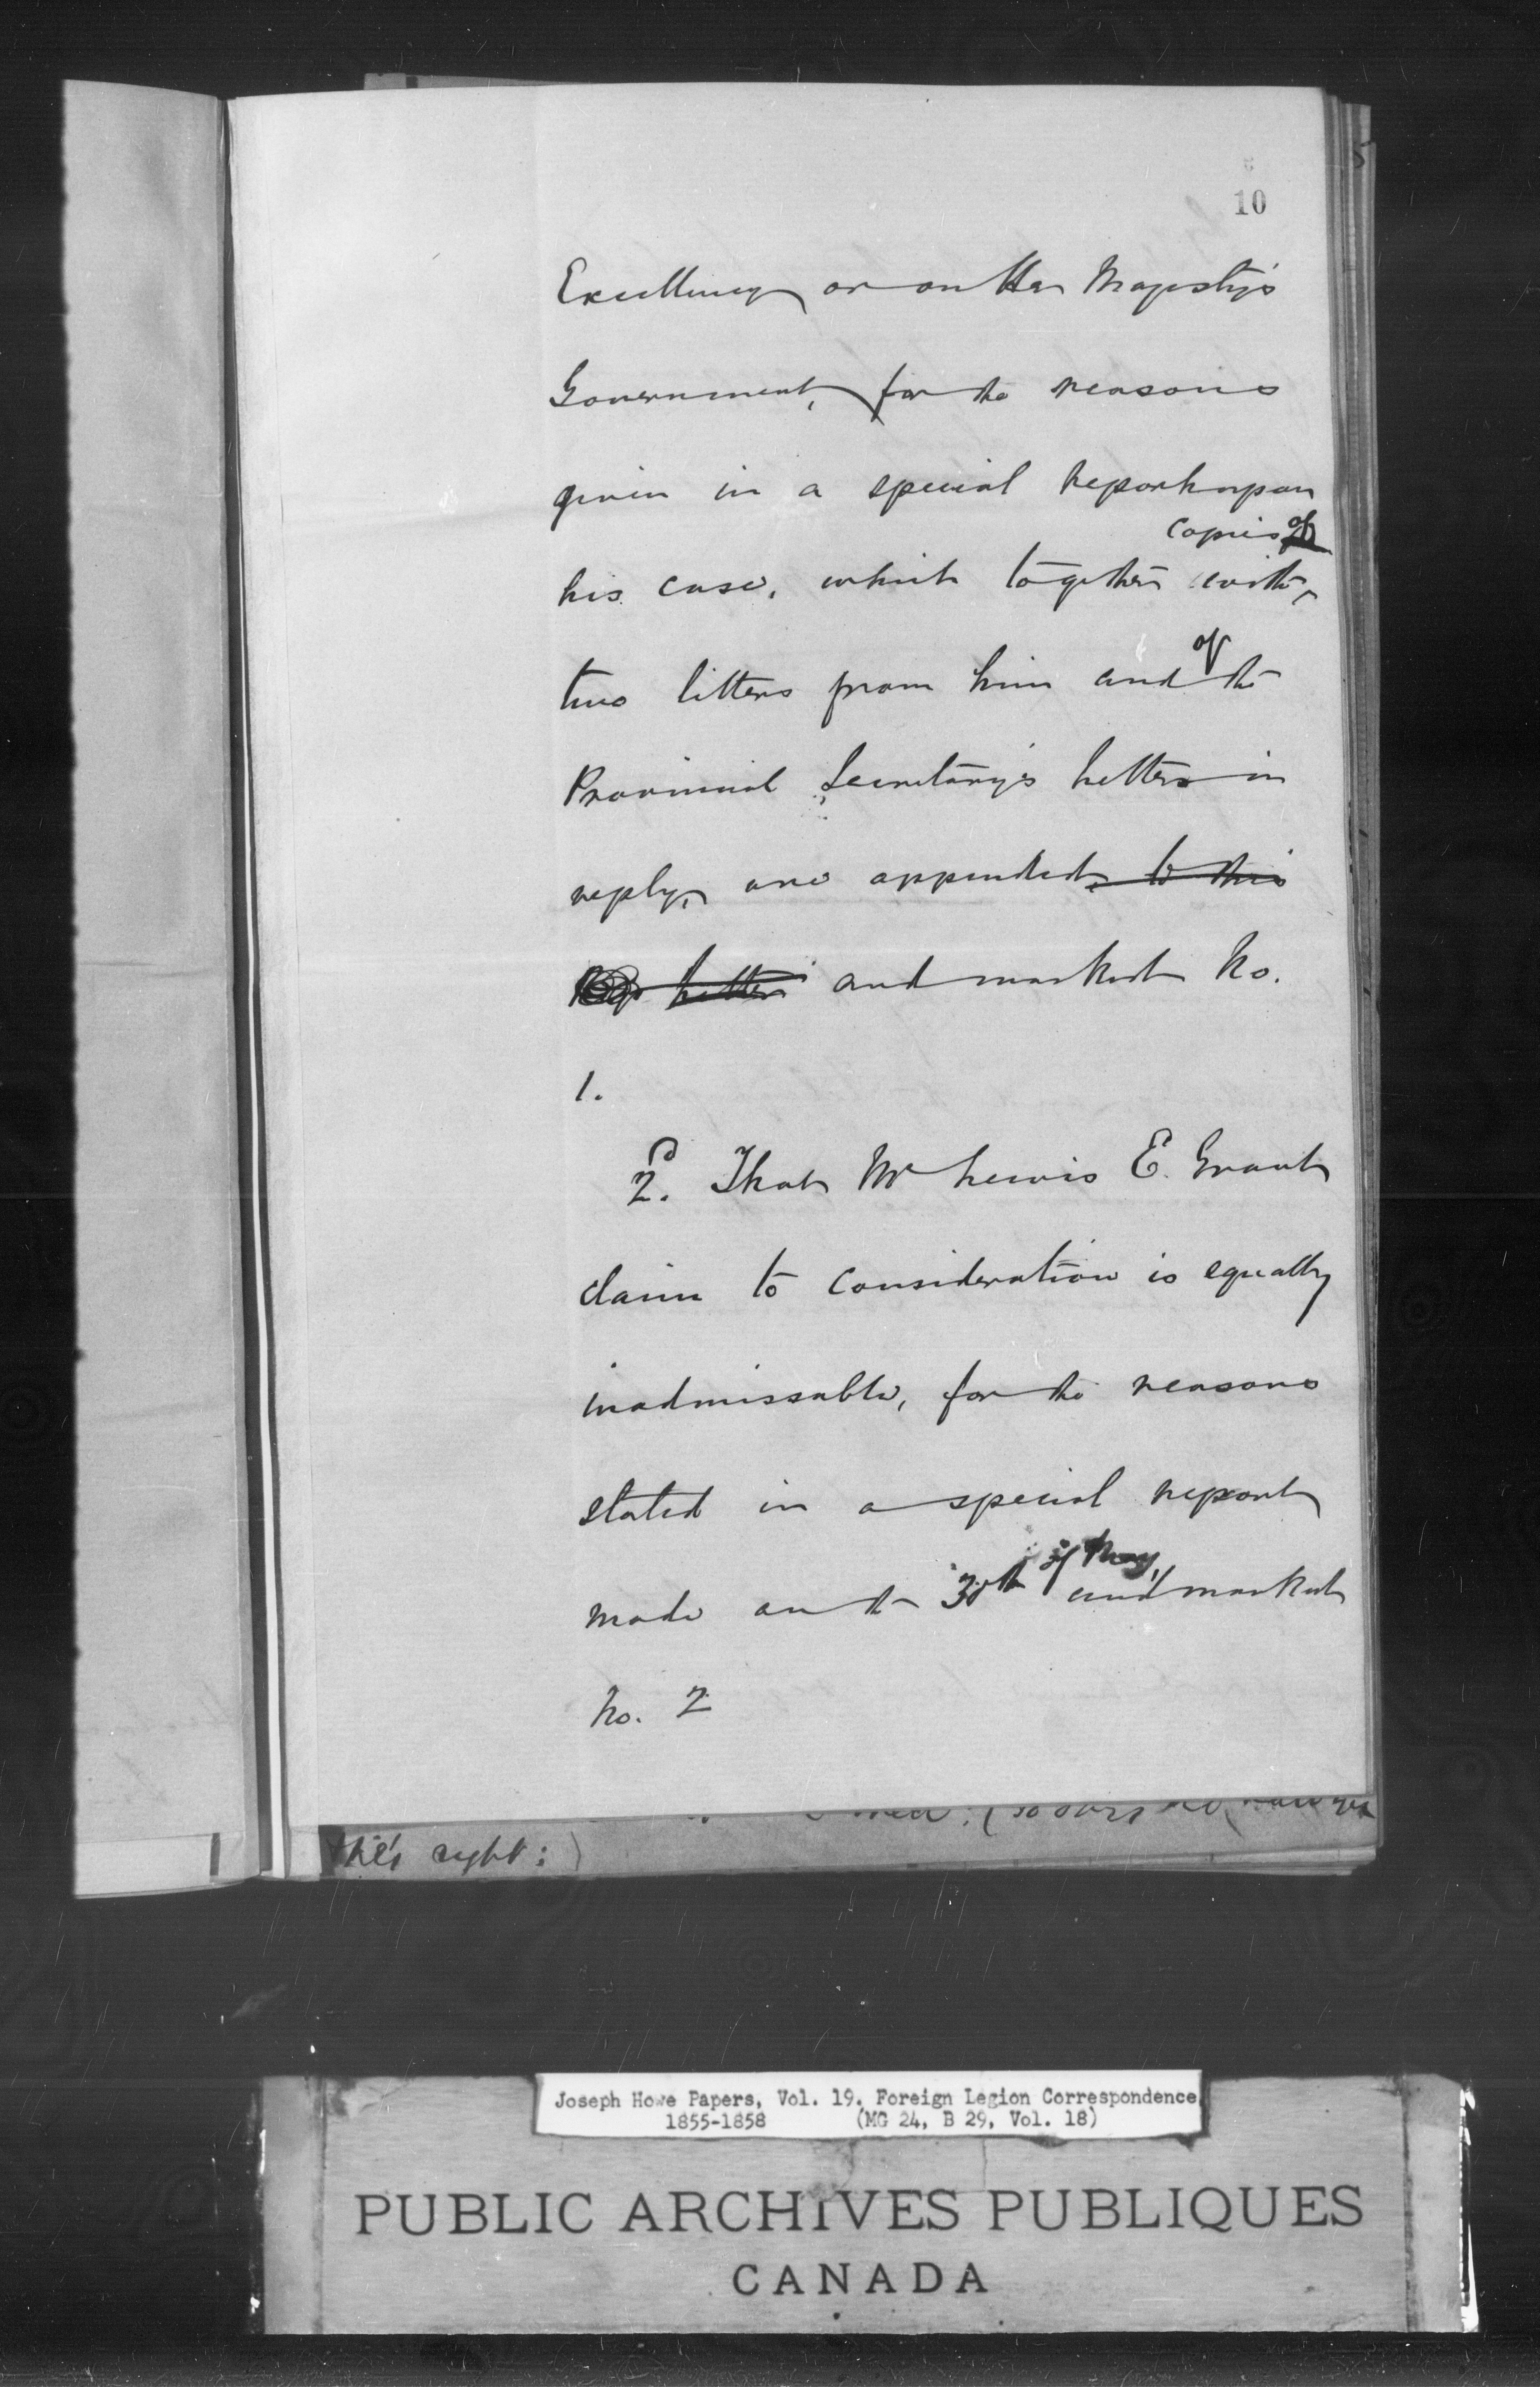 10
Excellency or on Her Majesty's
Government, for the reasons
given in a special report upon
copies of
his case, which together with
two letters from him and of the
Provincial Secretary's letters in
reply, are appended, to this
letter and marked No.
1.
2d. That Mr Lewis E. Grant
claim to consideration is equally
inadmissable, for the reasons
stated in a special report
made on the 30th of May, and marked
No. 2
right:
Joseph Howe Papers, Vol. 19. Foreign Legion Correspondence
1855-1858 (MG 24, B 29, Vol. 18)
PUBLIC ARCHIVES PUBLIQUES
CANADA